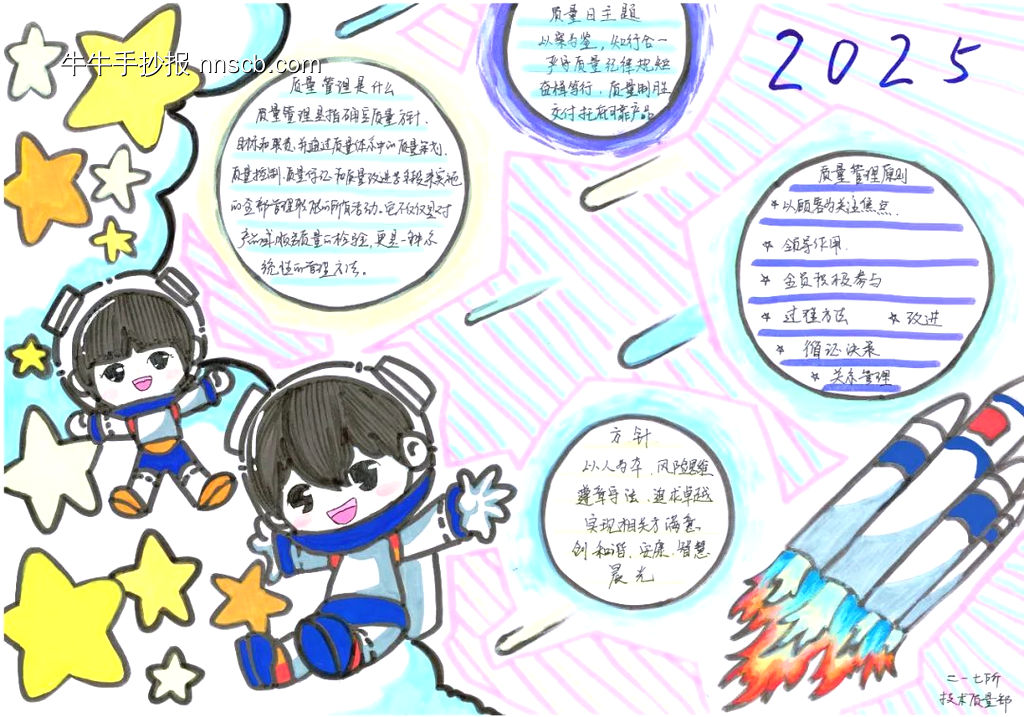 牛牛手抄报 nnscb.com
质量管理是什么
质量管理是指确定质量方针、
目标和职责,并通过质量体系中的质量策划、
质量控制、质量保证和质量改进等手段来实施
的全部管理职能的所有活动。它不仅仅是对
产品或服务质量的检验,更是一种系
统性的管理方法。
质量日主题
以案为鉴,知行合一
严守质量纪律规矩
质量制胜
交付托底可靠产品
2025
质量管理原则
☆以顾客为关注焦点
☆ 领导作用
☆ 全员积极参与
☆ 过程方法 ☆ 改进
☆ 循证决策
☆ 关系管理
方针
以人为本、风险思维
遵章守法、追求卓越
实现相关方满意
创和谐、安康、智慧
晨光
二一七所
技术质量部